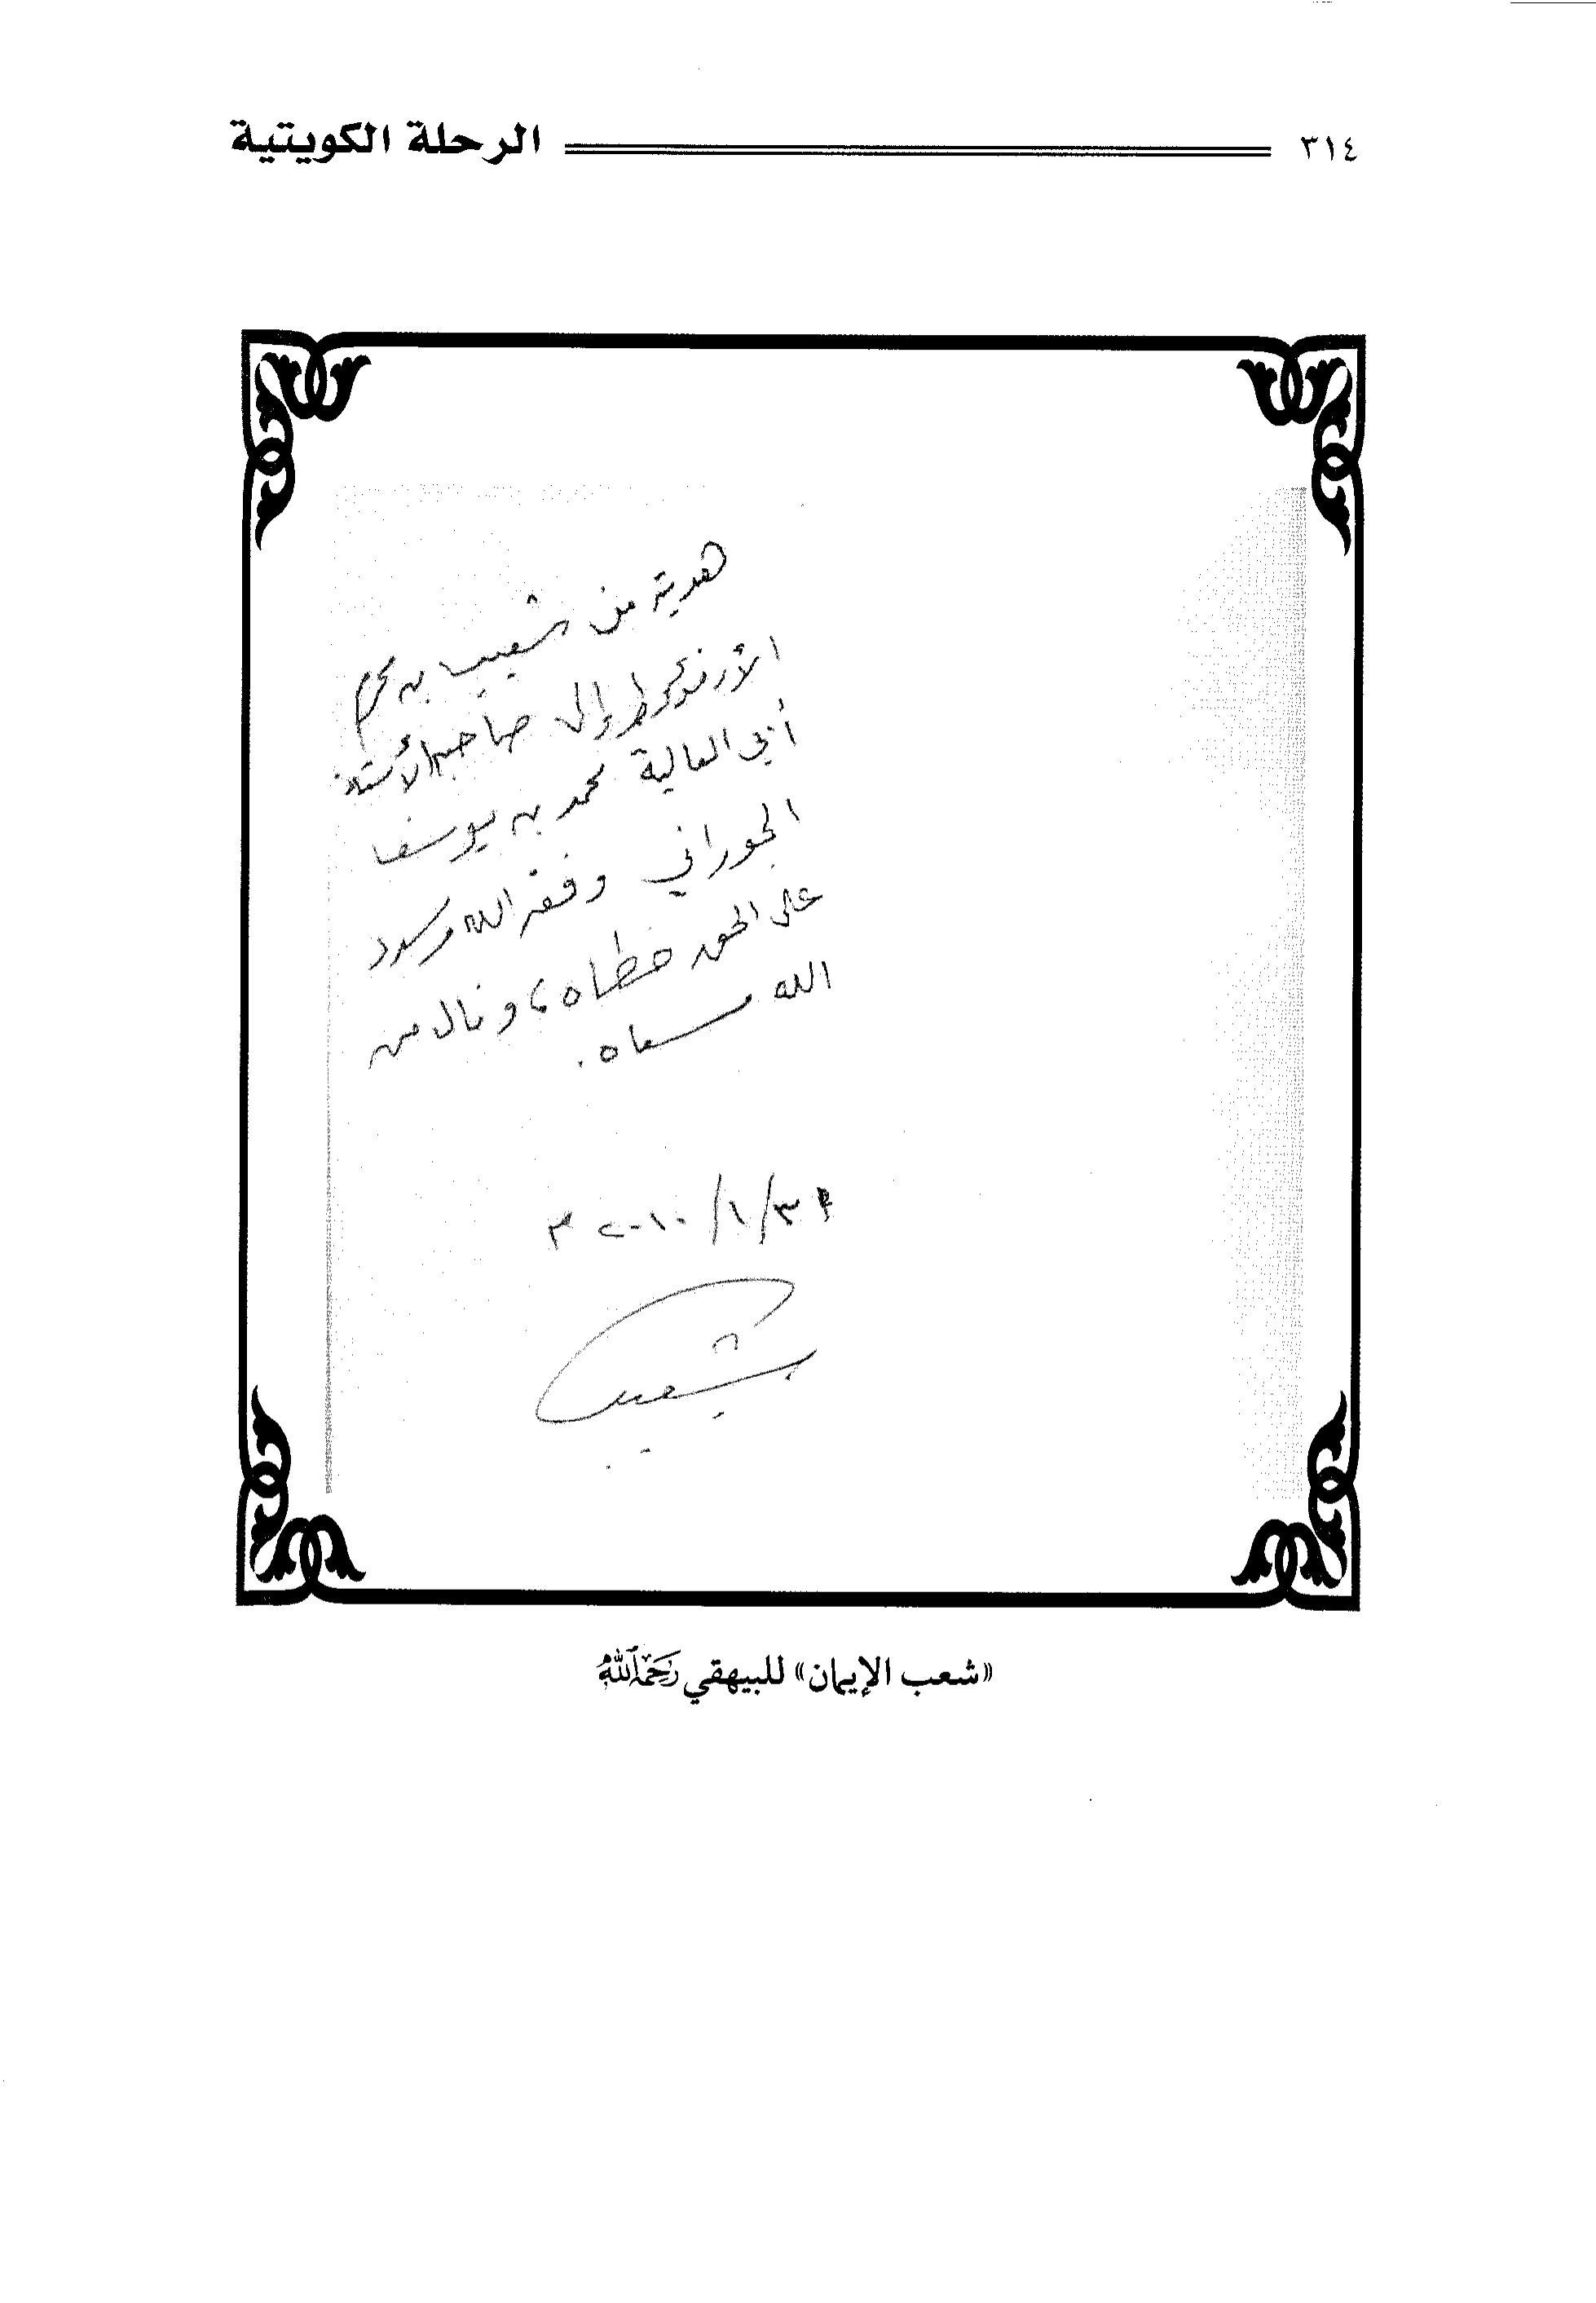 ٣١٤ الرحلة الكويتية
هدية من شعيب بن محرم
الأرنؤوط إلى صاحبه الأستاذ
أبي العالية محمد بن يوسف
الجوراني وفقه الله وسدد
على الحق خطاه، ونال من
الله مسعاه.
٣/١/٢٠١٠ م
شعيب
«شعب الإيمان» للبيهقي رَحِمَهُ ٱللَّهُ